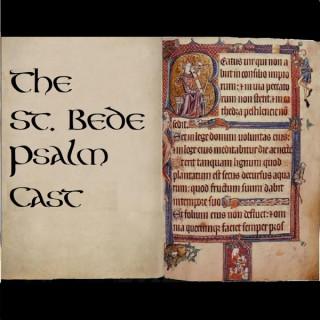 The
St. Bede
Psalm
Cast
Beatus uir qui non a
biit in consilio impio
rum: & in uia peccato
rum non stetit: & in ca
thedra pestilencie nõ
sedit.
Set in lege domini uoluntas eius:
& in lege eius meditabitur die ac nocte
Et erit tanquam lignum quod
plantatum est secus decursus aqua
rum: quod fructum suum dabit
in tempore suo
Et folium eius non defluet: & om
nia quecumque faciet semper prosp